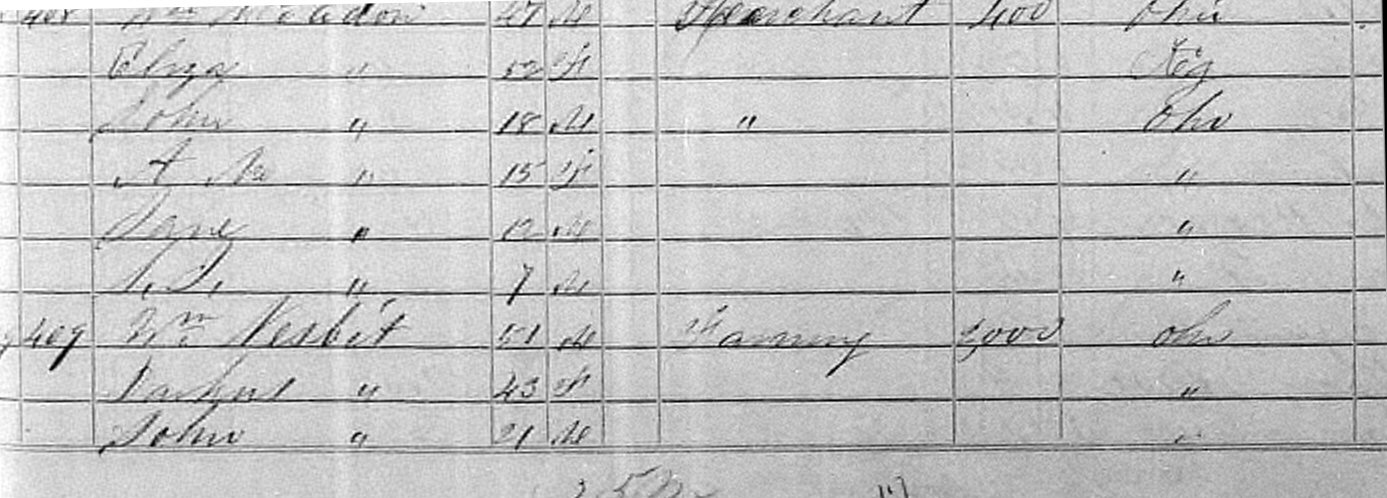 408 Wm 47 M Merchant 400 Ohio
Eliza " 52 F
John " 18 M " Ohio
A " 15 F "
Jane " 12 M "
" 7 M "
409 Wm Nesbit 51 M Farming 2000 Ohio
" 43 F "
John " 21 M "